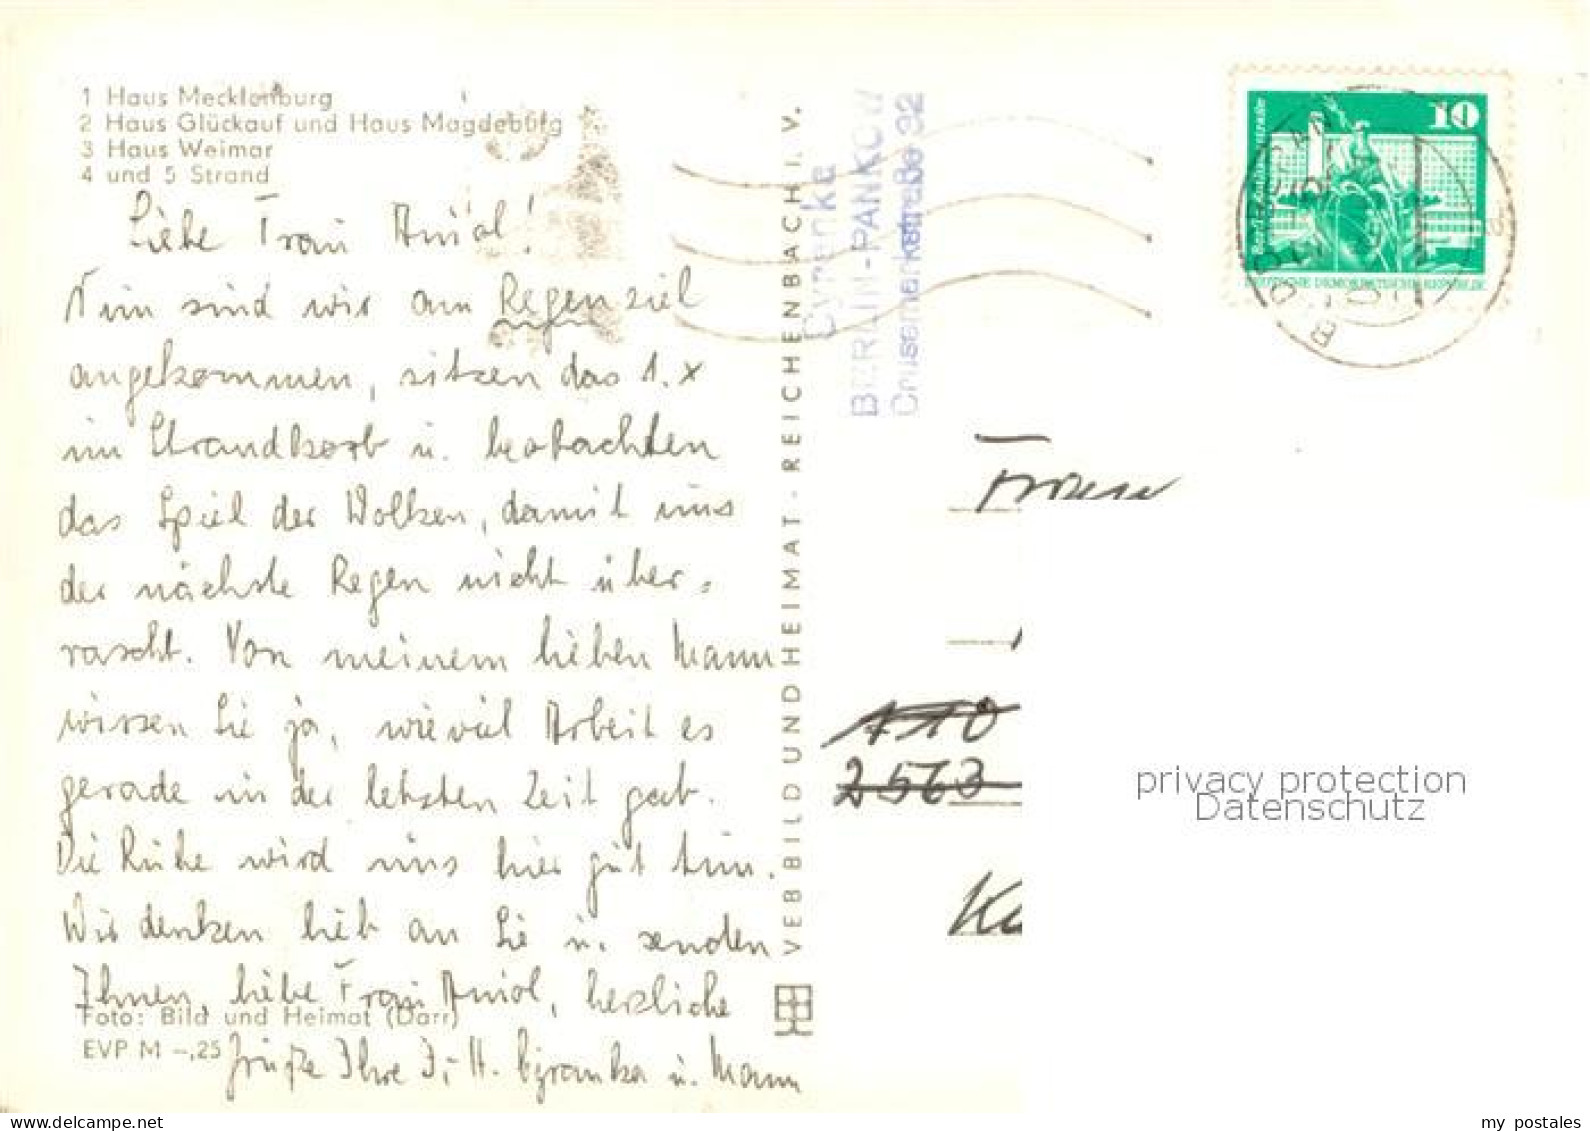 1 Haus Mecklenburg
2 Haus Glückauf und Haus Magdeburg
3 Haus Weimar
4 und 5 Strand
Liebe Frau Amol!
Nun sind wir am Regenziel
angekommen, sitzen das 1. x
im Strandkorb u. beobachten
das Spiel der Wolken, damit uns
der nächste Regen nicht über-
rascht. Von meinem lieben Mann
wissen Sie ja, wieviel Arbeit es
gerade in der letzten Zeit gab.
Die Ruhe wird uns hier gut tun.
Wir denken lieb an Sie u. senden
Ihnen, liebe Frau Amol, herzliche
Grüße Ihre I. H. Cyranka u. Mann
Foto: Bild und Heimat (Darr)
EVP M –,25
VEB BILD UND HEIMAT · REICHENBACH I. V.
BERLIN-PANKOW
10
DEUTSCHE DEMOKRATISCHE REPUBLIK
110
2563
privacy protection
Datenschutz
my postales